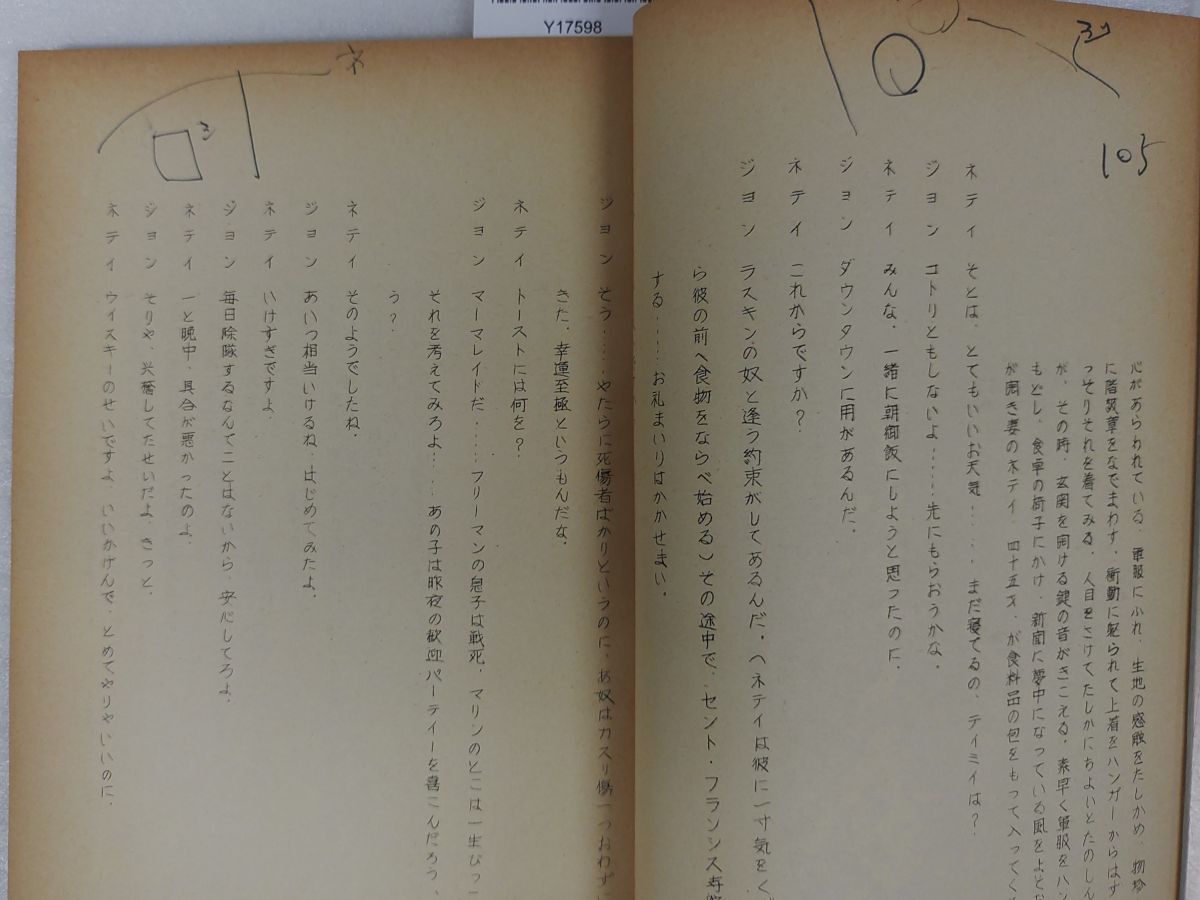 Y17598
ネ
ヨ
ヨ
105
心があらわれている。軍服にふれ、生地の感触をたしかめ、物珍
に階級章をなでまわす。衝動に駆られて上着をハンガーからはず
っそりそれを着てみる。人目をさけてたしかにちょいとたのしん
が、その時、玄関を開ける鍵の音がきこえる。素早く軍服をハン
もどし、食卓の椅子にかけ、新聞に夢中になっている風をよそお
が開き妻のネティ、四十五才、が食料品の包をもって入ってくる
ネティ そとは、とてもいいお天気!‥‥まだ寝てるの、ティミイは?
ジョン コトリともしないよ‥‥‥先にもらおうかな。
ネティ みんな、一緒に朝御飯にしようと思ったのに。
ジョン ダウンタウンに用があるんだ。
ネティ これからですか?
ジョン ラスキンの奴と逢う約束がしてあるんだ。(ネティは彼に一寸気をくば
ら彼の前へ食物をならべ始める)その途中で、セント・フランシス寺院
する‥‥‥お礼まいりはかかせまい。
ジョン そう‥‥‥やたらに死傷者ばかりというのに、あ奴はカスリ傷一つおわずに
きた。幸運至極というもんだな。
ネティ トーストには何を?
ジョン マーマレイドだ‥‥‥フリーマンの息子は戦死。マリンのとこは一生びっ
それを考えてみろよ‥‥‥あの子は昨夜の歓迎パーティーを喜こんだろう、
う?
ネティ そのようでしたね。
ジョン あいつ相当いけるね、はじめてみたよ。
ネティ いけすぎですよ。
ジョン 毎日除隊するなんてことはないから、安心してろよ。
ネティ 一と晩中、具合が悪かったのよ。
ジョン そりゃ、興奮してたせいだよ、きっと。
ネティ ウイスキーのせいですよ、いいかげんで、とめてやりゃいいのに。